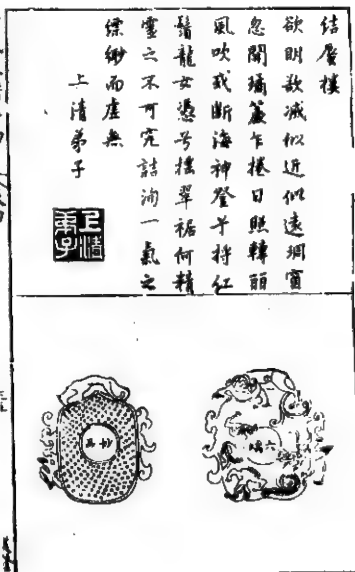 結蜃樓
欲明欻滅似近似遠琱窗
忽開璚簾乍捲日照轉丽
風吹或斷海神登兮捋紅
鬚龍女憑兮搖翠裾何精
靈之不可究詰洵一氣之
縹緲而虛無
上清弟子
上清弟子